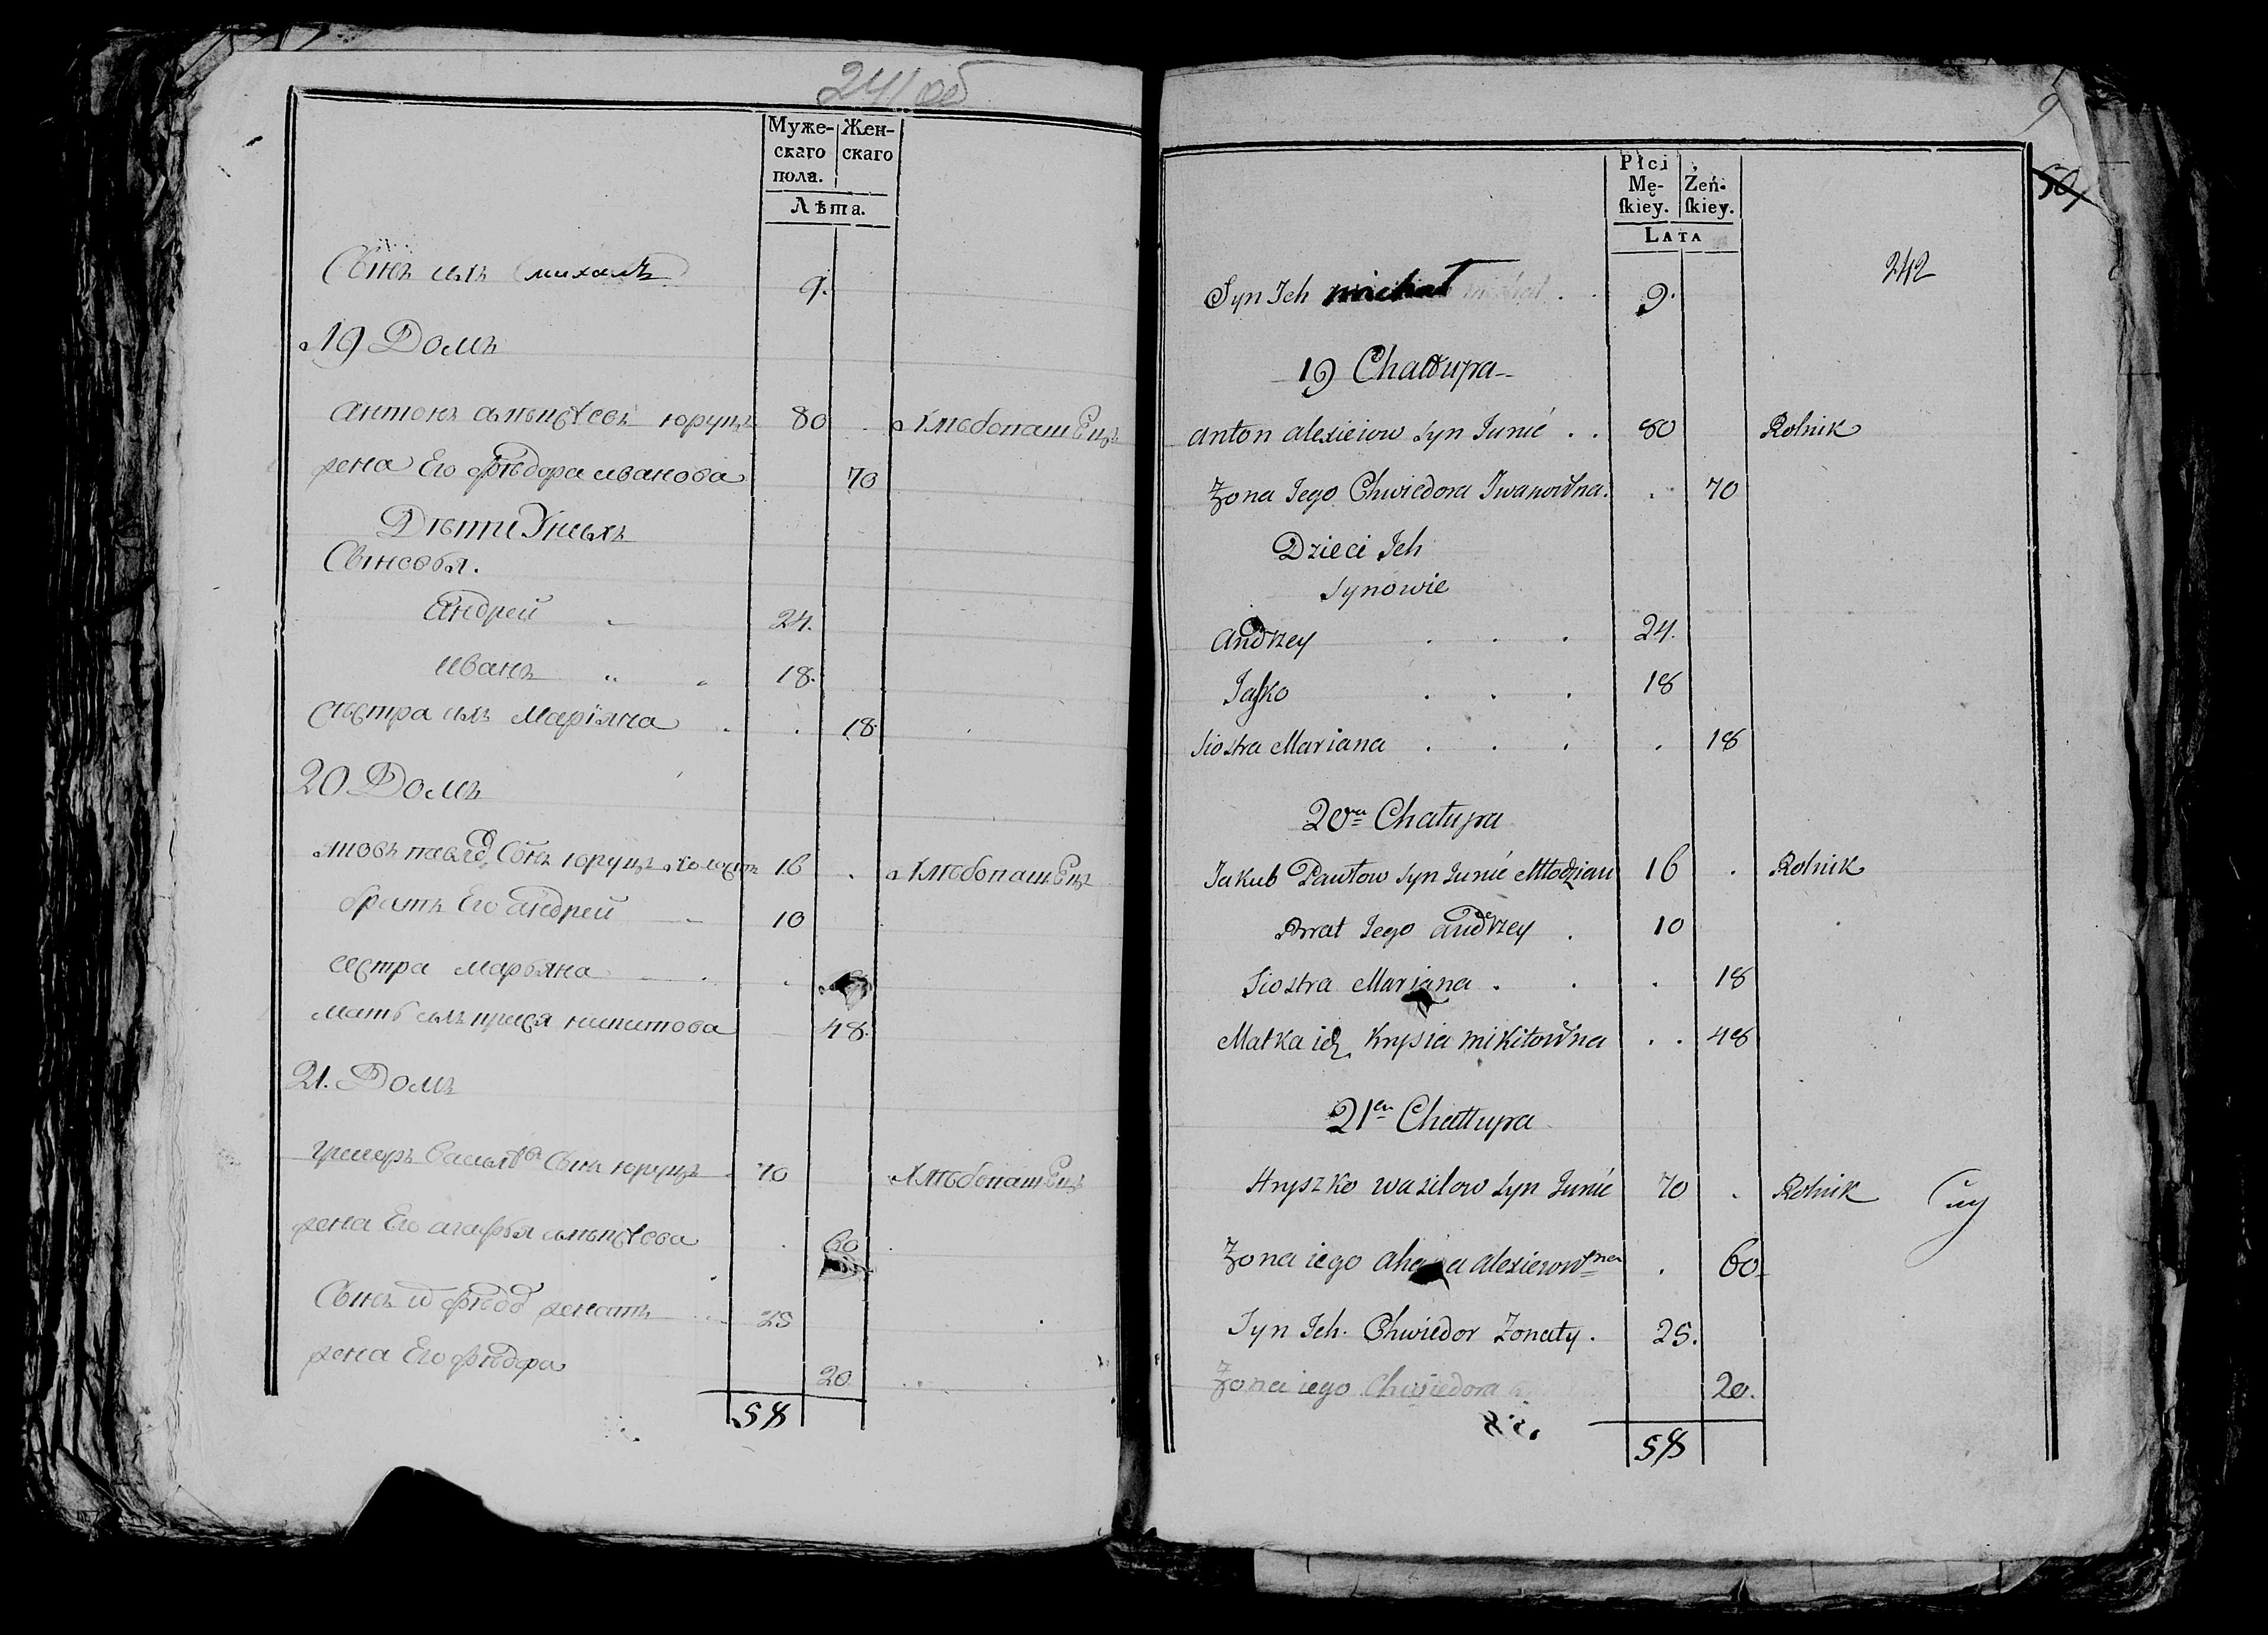 241 об
Муже- Жен-
скаго скаго
пола.
Лѣта.
Сынъ ихъ михалъ 9.
19 Домъ
Антонъ алексѣевъ юруць 80 . Хлебопашецъ
жена Его фѣдора иванова 70
Дѣти Уныхъ
Сыновья.
Андрей 24.
иванъ 18.
Сѣстра ихъ Марiяна . . 18.
20 Домъ
Сынъ юруць холостъ 16 . Хлебопашецъ
братъ Его андрей 10
сестра марьяна . .
мать ихъ никитова 48.
21. Домъ
Сынъ юруць 70 Хлѣбопашецъ
жена Его агафья алексѣева . 60
Сынъ фѣдо женатъ 25
жена Его фѣдора 20
58
9
50
Płci
Mę- Żeń-
ſkiey. ſkiey.
LATA
242
Syn Ich michał michał . . 9.
19 Chałłupa
anton alexieiow syn Junić . . 80 Rolnik
Żona Jego Chwiedora Jwanowna . 70
Dzieci Ich
Synowie
andrzey . . . 24.
Jaſko . . . 18
Siostra Mariana . . . . 18
20ta Chałupa
Jakub Pawłow syn Junić Młodzian 16 . Rolnik
Brat Jego andrzey . 10
Siostra Marjana . . . 18
Matka ich Krysia mikitowna . . 48
21a Chałłupa
Hryszko wasilow syn Junić 70 . Rolnik
Żona iego alexieiowna . 60
Syn Ich. Chwiedor Żonaty . 25.
Żona iego Chwiedora 20.
58